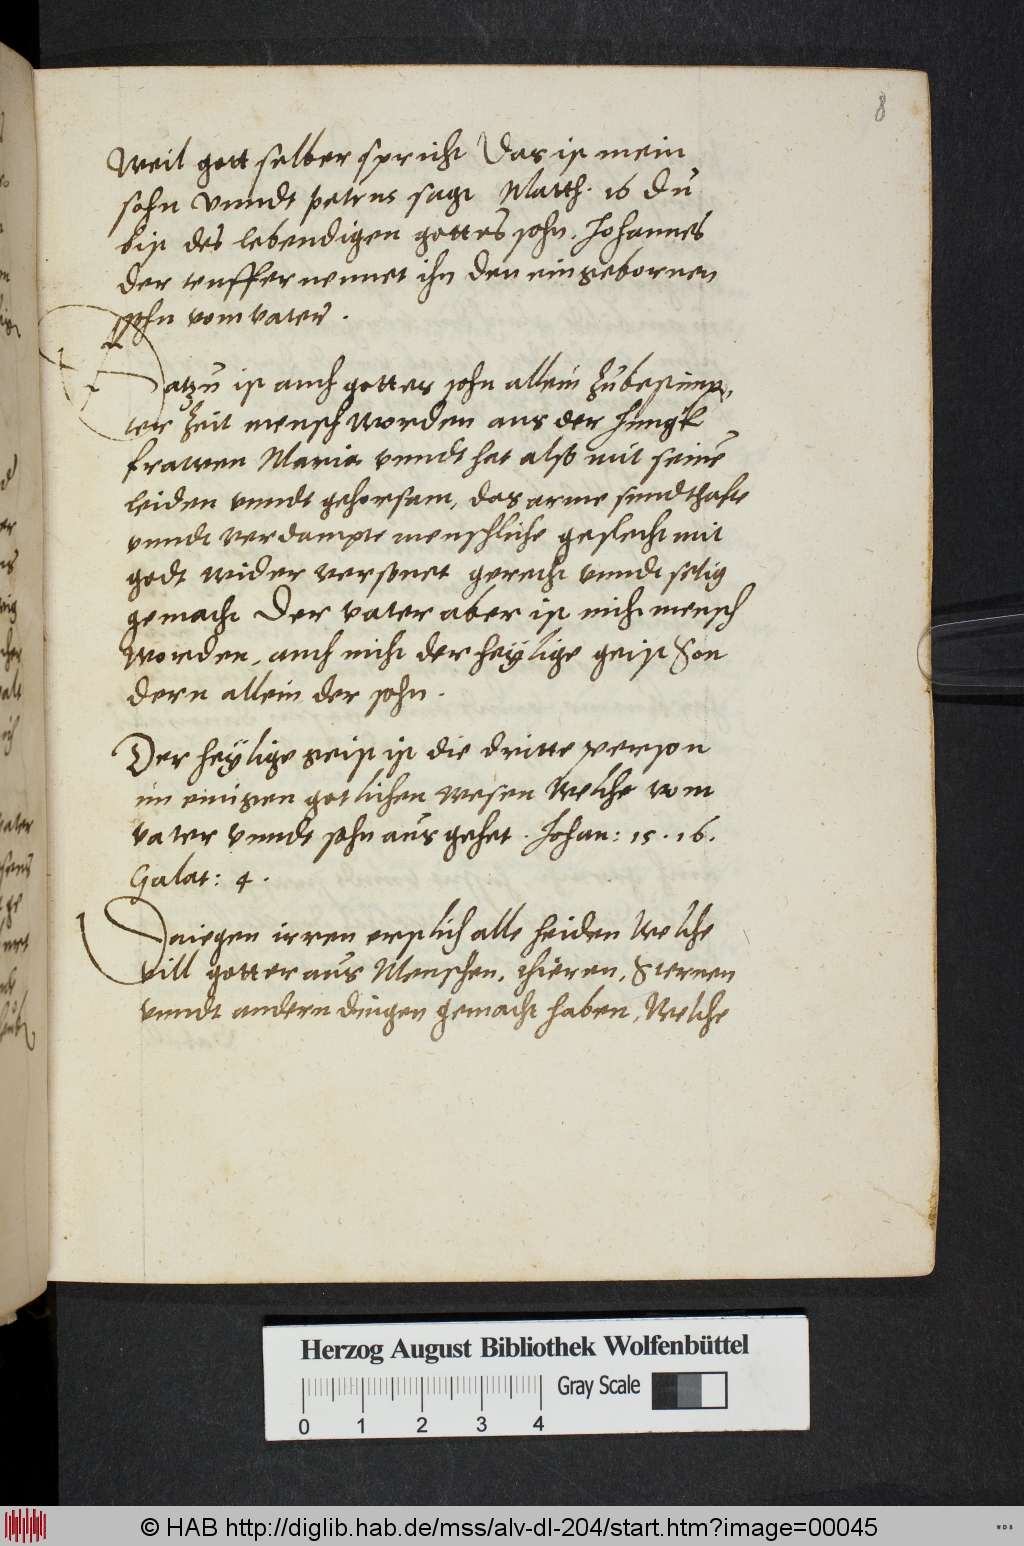 8
Weil gott selber spricht Das ist mein
sohn vnndt petrus sagt Matth. 16 du
bist des lebendigen gottes sohn. Johannes
der teuffer nennet ihn den eingebornen
sohn vom vater.
Datzu ist auch gottes sohn allein zu bestimp,
ter zeit mensch worden aus der Jungk
frawen Maria vnndt hat also mit seinē
leiden vnndt gehorsam, das arme sundthafte
vnndt verdampte menschliche geslecht mit
godt wider versonet gerecht vnndt selig
gemacht Der vater aber ist nicht mensch
worden, auch nicht der heÿlige geist Son
dern allein der sohn.
Der heÿlige geist ist die dritte person
im einigen gotlichen wesen Welche vom
vater vnndt sohn ausgehet. Johan: 15. 16.
Galat: 4.
Daiegen irren erstlich alle heiden Welche
vill gotter aus Menschen, thieren, Sternen
vnndt andern dingen gemacht haben, Welche
Herzog August Bibliothek Wolfenbüttel
Gray Scale
0 1 2 3 4
© HAB http://diglib.hab.de/mss/alv-dl-204/start.htm?image=00045